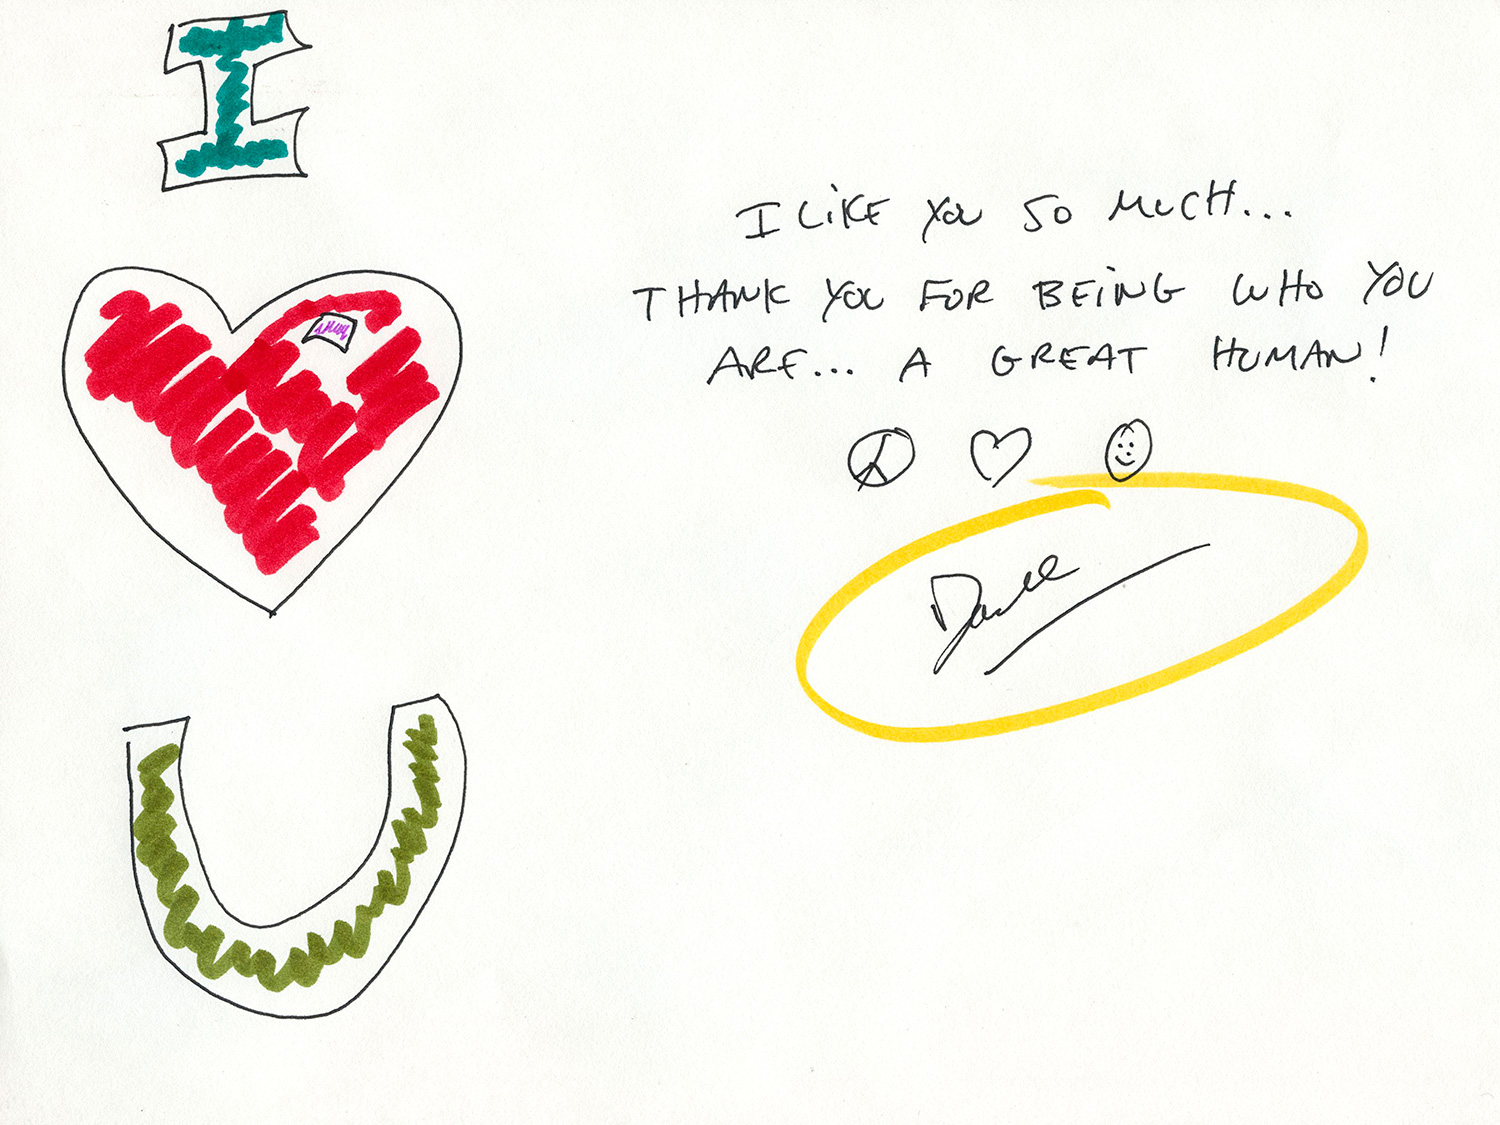 I
U
I LIKE YOU SO MUCH...
THANK YOU FOR BEING WHO YOU
ARE... A GREAT HUMAN!